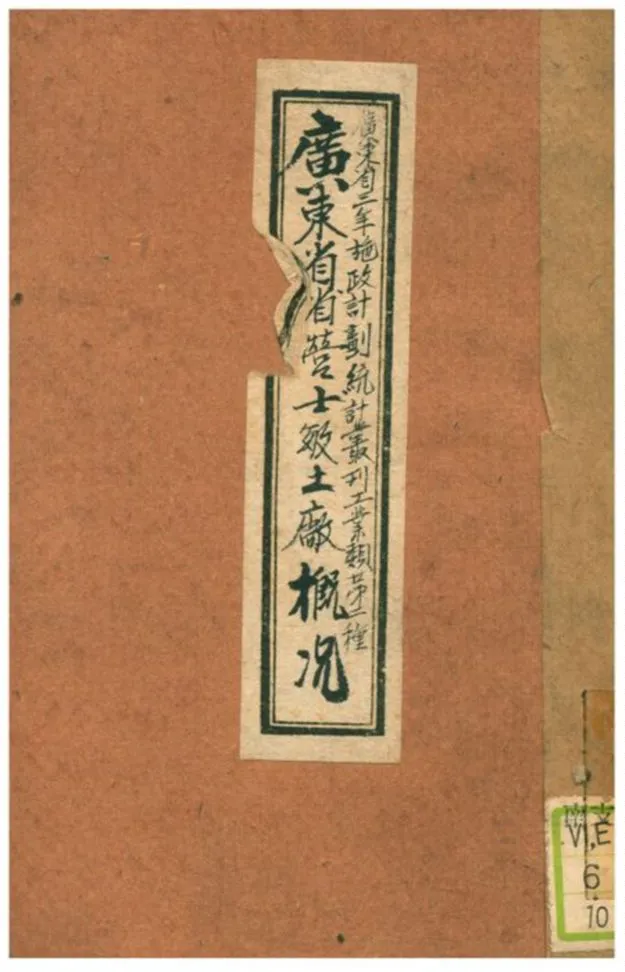 廣東省三年施政計劃統計叢刊工業類第二種
廣東省省營士敏土廠概況
南支
VI,E
6
10